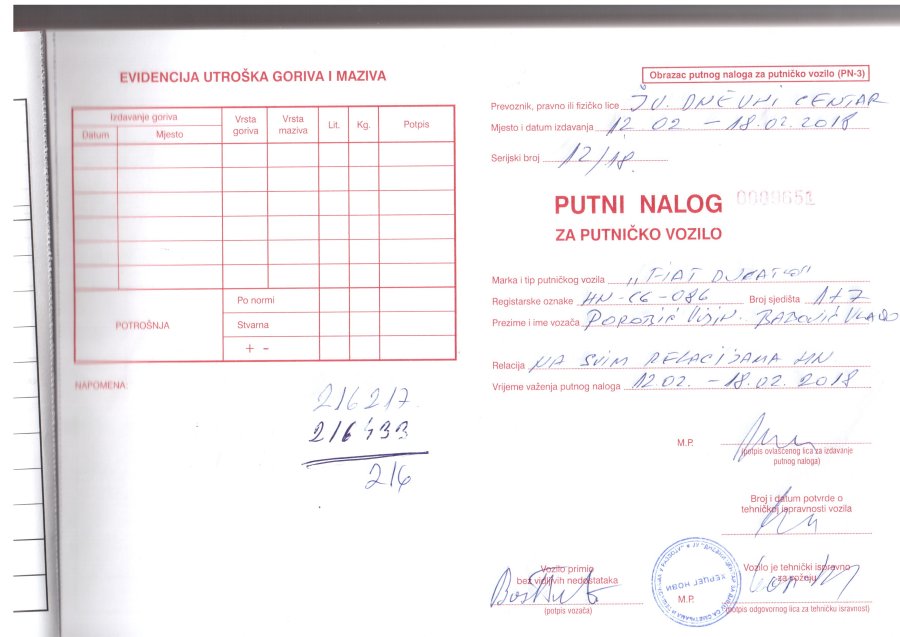 EVIDENCIJA UTROŠKA GORIVA I MAZIVA
Izdavanje goriva
Datum Mjesto Vrsta goriva Vrsta maziva Lit. Kg. Potpis
POTROŠNJA
Po normi
Stvarna
+ -
NAPOMENA:
216217
216433
216
Obrazac putnog naloga za putničko vozilo (PN-3)
Prevoznik, pravno ili fizičko lice JU. DNEVNI CENTAR
Mjesto i datum izdavanja 12 02. - 18.02.2018
Serijski broj 12/18.
PUTNI NALOG 0000651
ZA PUTNIČKO VOZILO
Marka i tip putničkog vozila „FIAT DUCATO"
Registarske oznake HN-CG-086 Broj sjedišta 1+7
Prezime i ime vozača POROBIĆ BADOVIĆ VLADO
Relacija NA SVIM RELACIJAMA HN
Vrijeme važenja putnog naloga 12 02. - 18.02.2018
M.P.
(potpis ovlašćenog lica za izdavanje
putnog naloga)
Broj i datum potvrde o
tehničkoj ispravnosti vozila
Vozilo primio
bez vidljivih nedostataka
(potpis vozača)
ХЕРЦЕГ НОВИ
M.P.
Vozilo je tehnički ispravno
za vožnju
(potpis odgovornog lica za tehničku isravnost)